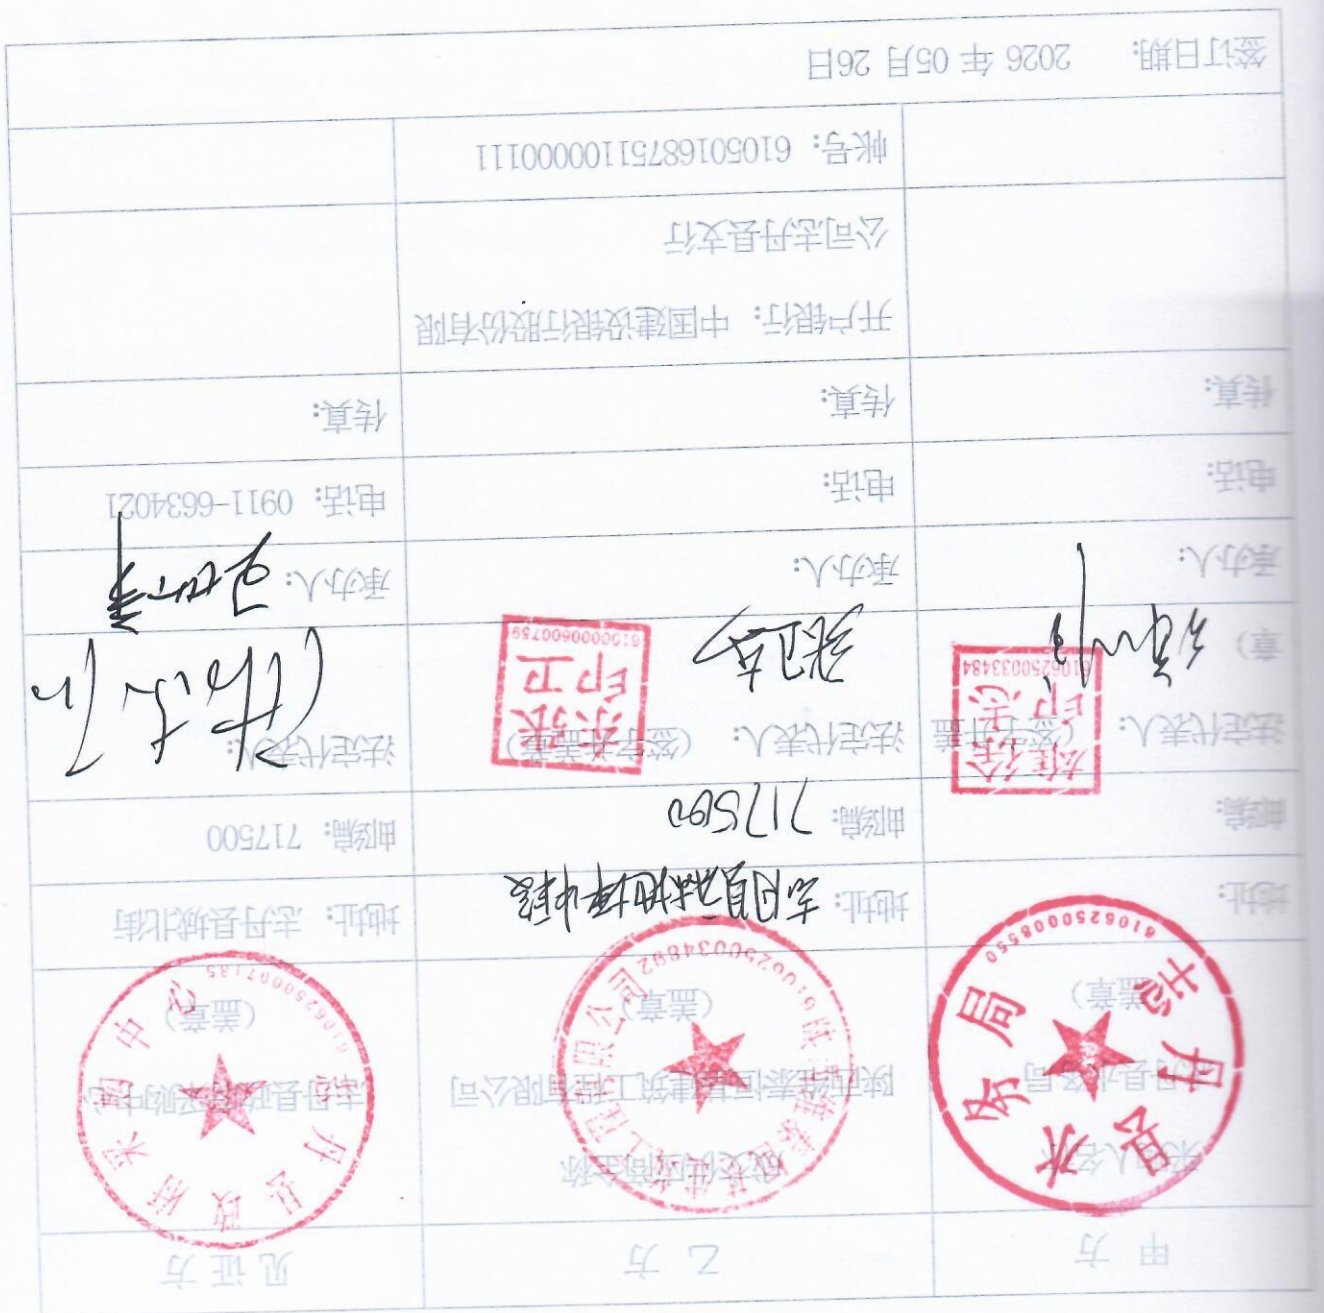 甲 方
乙 方
见 证 方
采购人名称
志丹县水务局
（盖章）
成交供应商全称
陕西维泰恒基建筑工程有限公司
（盖章）
志丹县政府采购中心
（盖章）
地址：
地址：
地址：志丹县城北街
邮编：
邮编：717500
邮编：717500
法定代表人：（签字并盖章）
法定代表人：（签字并盖章）
法定代表人：
承办人：
承办人：
承办人：
电话：
电话：
电话：0911-6634021
传真：
传真：
传真：
开户银行：中国建设银行股份有限
公司志丹县支行
帐号：61050168751100000111
签订日期： 2026 年 05 月 26日
志丹县水务局
6106250008550
陕西维泰恒基建筑工程有限公司
志丹县政府采购中心
6106250007185
6106250033484
6100000600759